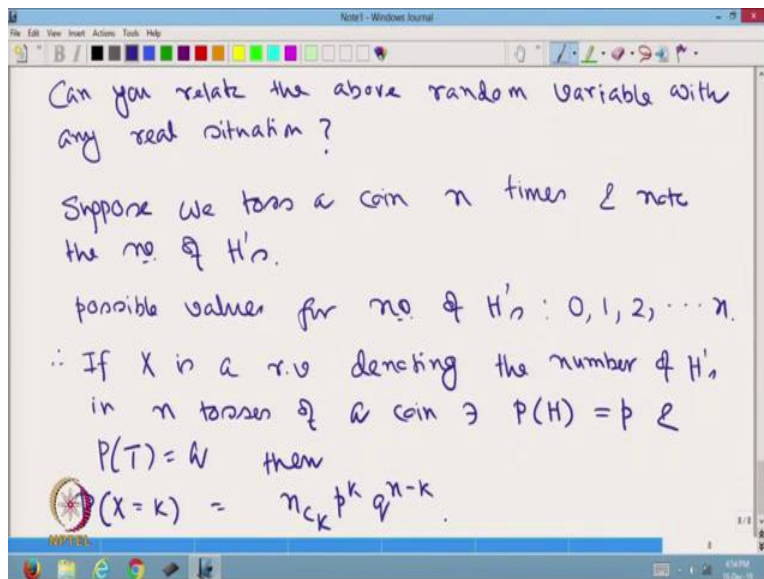 Note1 - Windows Journal
File Edit View Insert Actions Tools Help
Can you relate the above random variable with
any real situation ?
Suppose we toss a coin n times & note
the no. of H's.
possible values for no. of H's : 0, 1, 2, ... n.
∴ If X is a r.v denoting the number of H's
in n tosses of a coin ∋ P(H) = p &
P(T) = q then
P(X = K) = n_{C_K} p^K q^{n-K}.
NPTEL
8/8